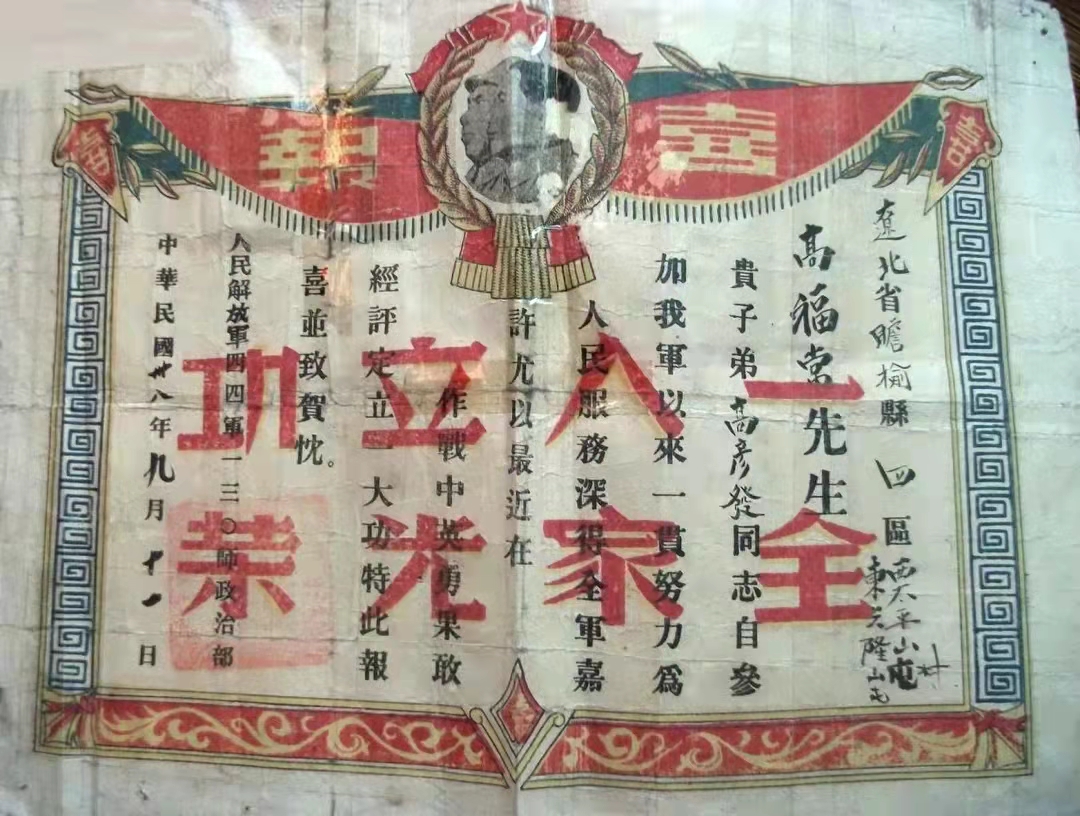 喜報
遼北省瞻榆縣 四 區西太平山屯村
東兴隆山屯
高福崇先生
貴子弟高彥發同志自參
加我軍以來一貫努力為
人民服務深得全軍嘉
許尤以最近在
作戰中英勇果敢
經評定立一大功特此報
喜並致賀忱。
人民解放軍四四軍一三〇師政治部
中華民國卅八年九月十一日
一人立功
全家光榮